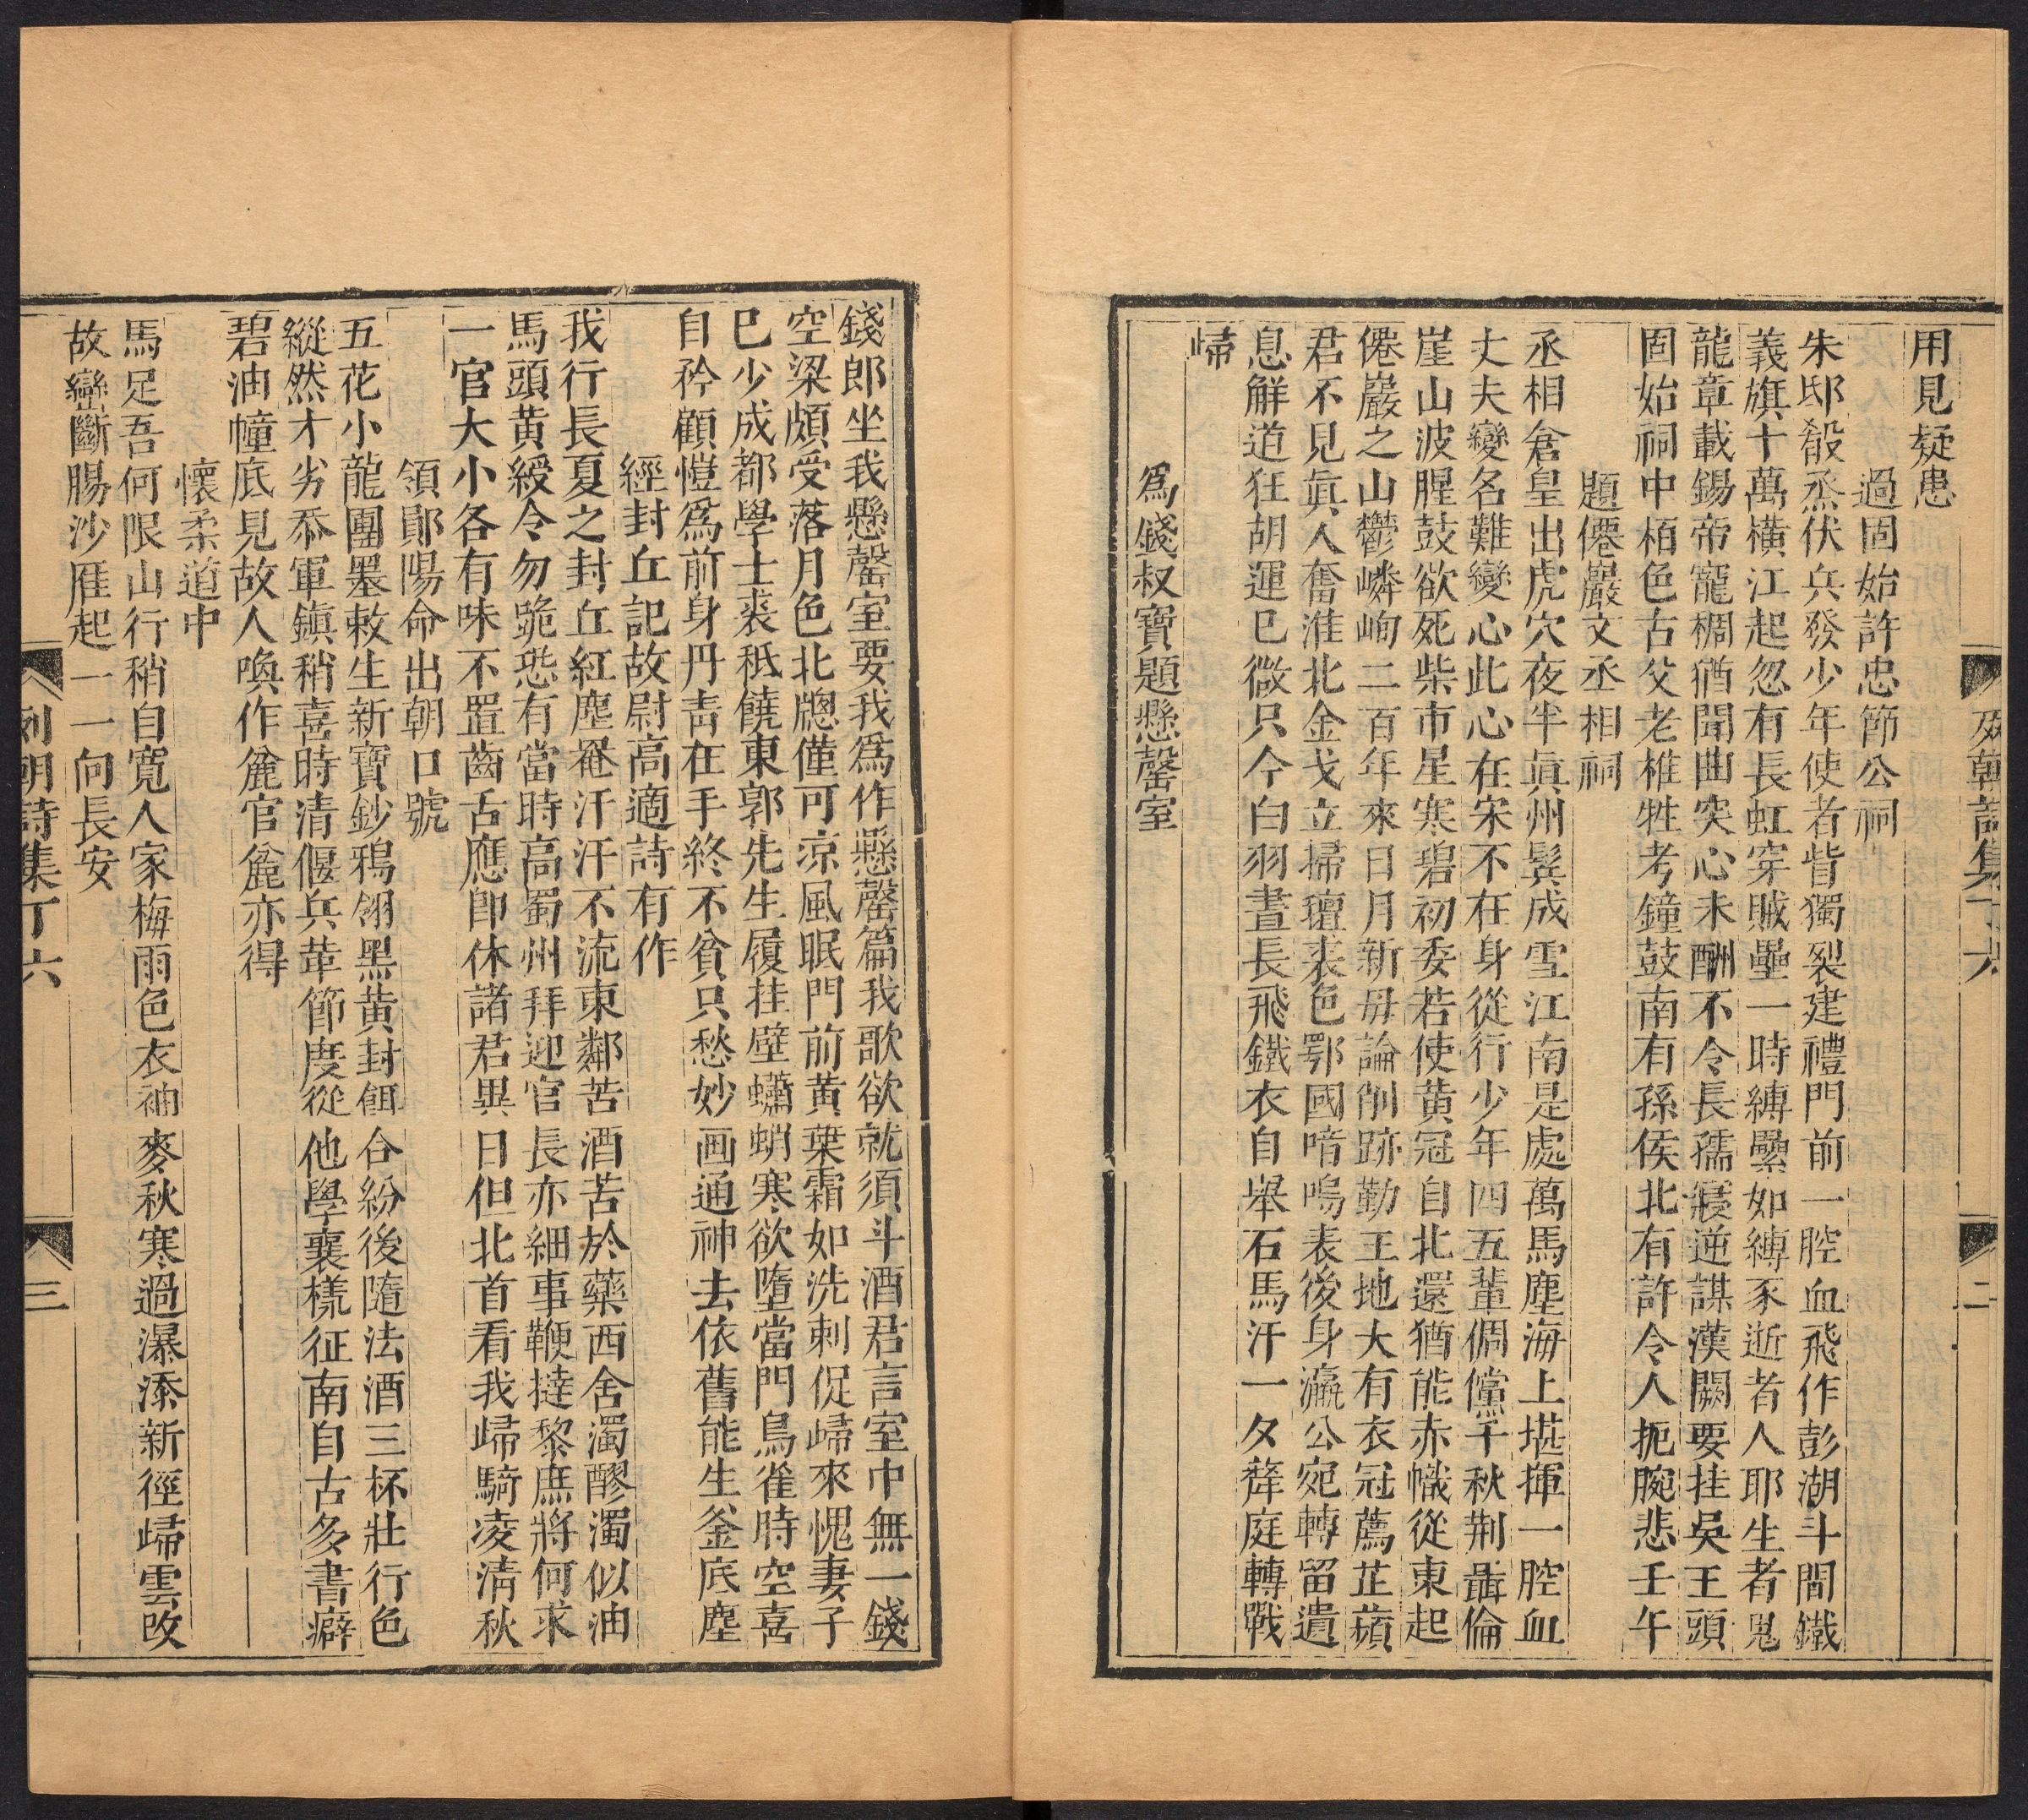 用見疑患
過固始許忠節公祠
朱邸殽烝伏兵發少年使者眥獨裂建禮門前一腔血飛作彭湖斗間鐵
義旗十萬橫江起忽有長虹穿賊壘一時縛纍如縛豕逝者人耶生者鬼
龍章載錫帝寵稠猶聞曲突心未酬不令長孺寢逆謀漢闕要挂吳王頭
固始祠中栢色古父老椎牲考鐘鼓南有孫侯北有許令人扼腕悲壬午
題僊巖文丞相祠
丞相倉皇出虎穴夜半眞州鬂成雪江南是處萬馬塵海上堪揮一腔血
丈夫變名難變心此心在宋不在身從行少年四五輩倜儻千秋荆聶倫
崖山波腥鼓欲死柴市星寒碧初委若使黃冠自北還猶能赤幟從東起
僊巖之山鬱嶙峋二百年來日月新毋論削跡勤王地大有衣冠薦芷蘋
君不見眞人奮淮北金戈立掃璮裘色鄂國喑嗚表後身瀛公宛轉留遺
息觧道狂胡運已微只今白羽晝長飛鐵衣自舉石馬汗一夕犛庭轉戰
歸
爲錢叔寶題懸罄室
列朝詩集丁六
二
錢郎坐我懸罄室要我爲作懸罄篇我歌欲就須斗酒君言室中無一錢
空梁頗受落月色北牕僅可凉風眠門前黃葉霜如洗刺促歸來愧妻子
巳少成都學士裘秪饒東郭先生履挂壁蠨蛸寒欲墮當門鳥雀時空喜
自矜顧愷爲前身丹靑在手終不貧只愁妙画通神去依舊能生釜底塵
經封丘記故尉高適詩有作
我行長夏之封丘紅塵罨汗汗不流東鄰苦酒苦於藥西舍濁醪濁似油
馬頭黃綬令勿跪恐有當時高蜀州拜迎官長亦細事鞭撻黎庶將何求
一官大小各有味不置齒舌應卽休諸君異日但北首看我歸騎凌淸秋
領鄖陽命出朝口號
五花小龍團墨敕生新寶鈔鴉翎黑黃封餌合紛後隨法酒三杯壯行色
縱然才劣忝軍鎮稍喜時清偃兵革節度從他學襄樣征南自古多書癖
碧油幢底見故人喚作麄官麄亦得
懷柔道中
馬足吾何限山行稍自寬人家梅雨色衣袖麥秋寒過瀑添新徑歸雲改
故巒斷腸沙雁起一一向長安
列朝詩集丁六
三